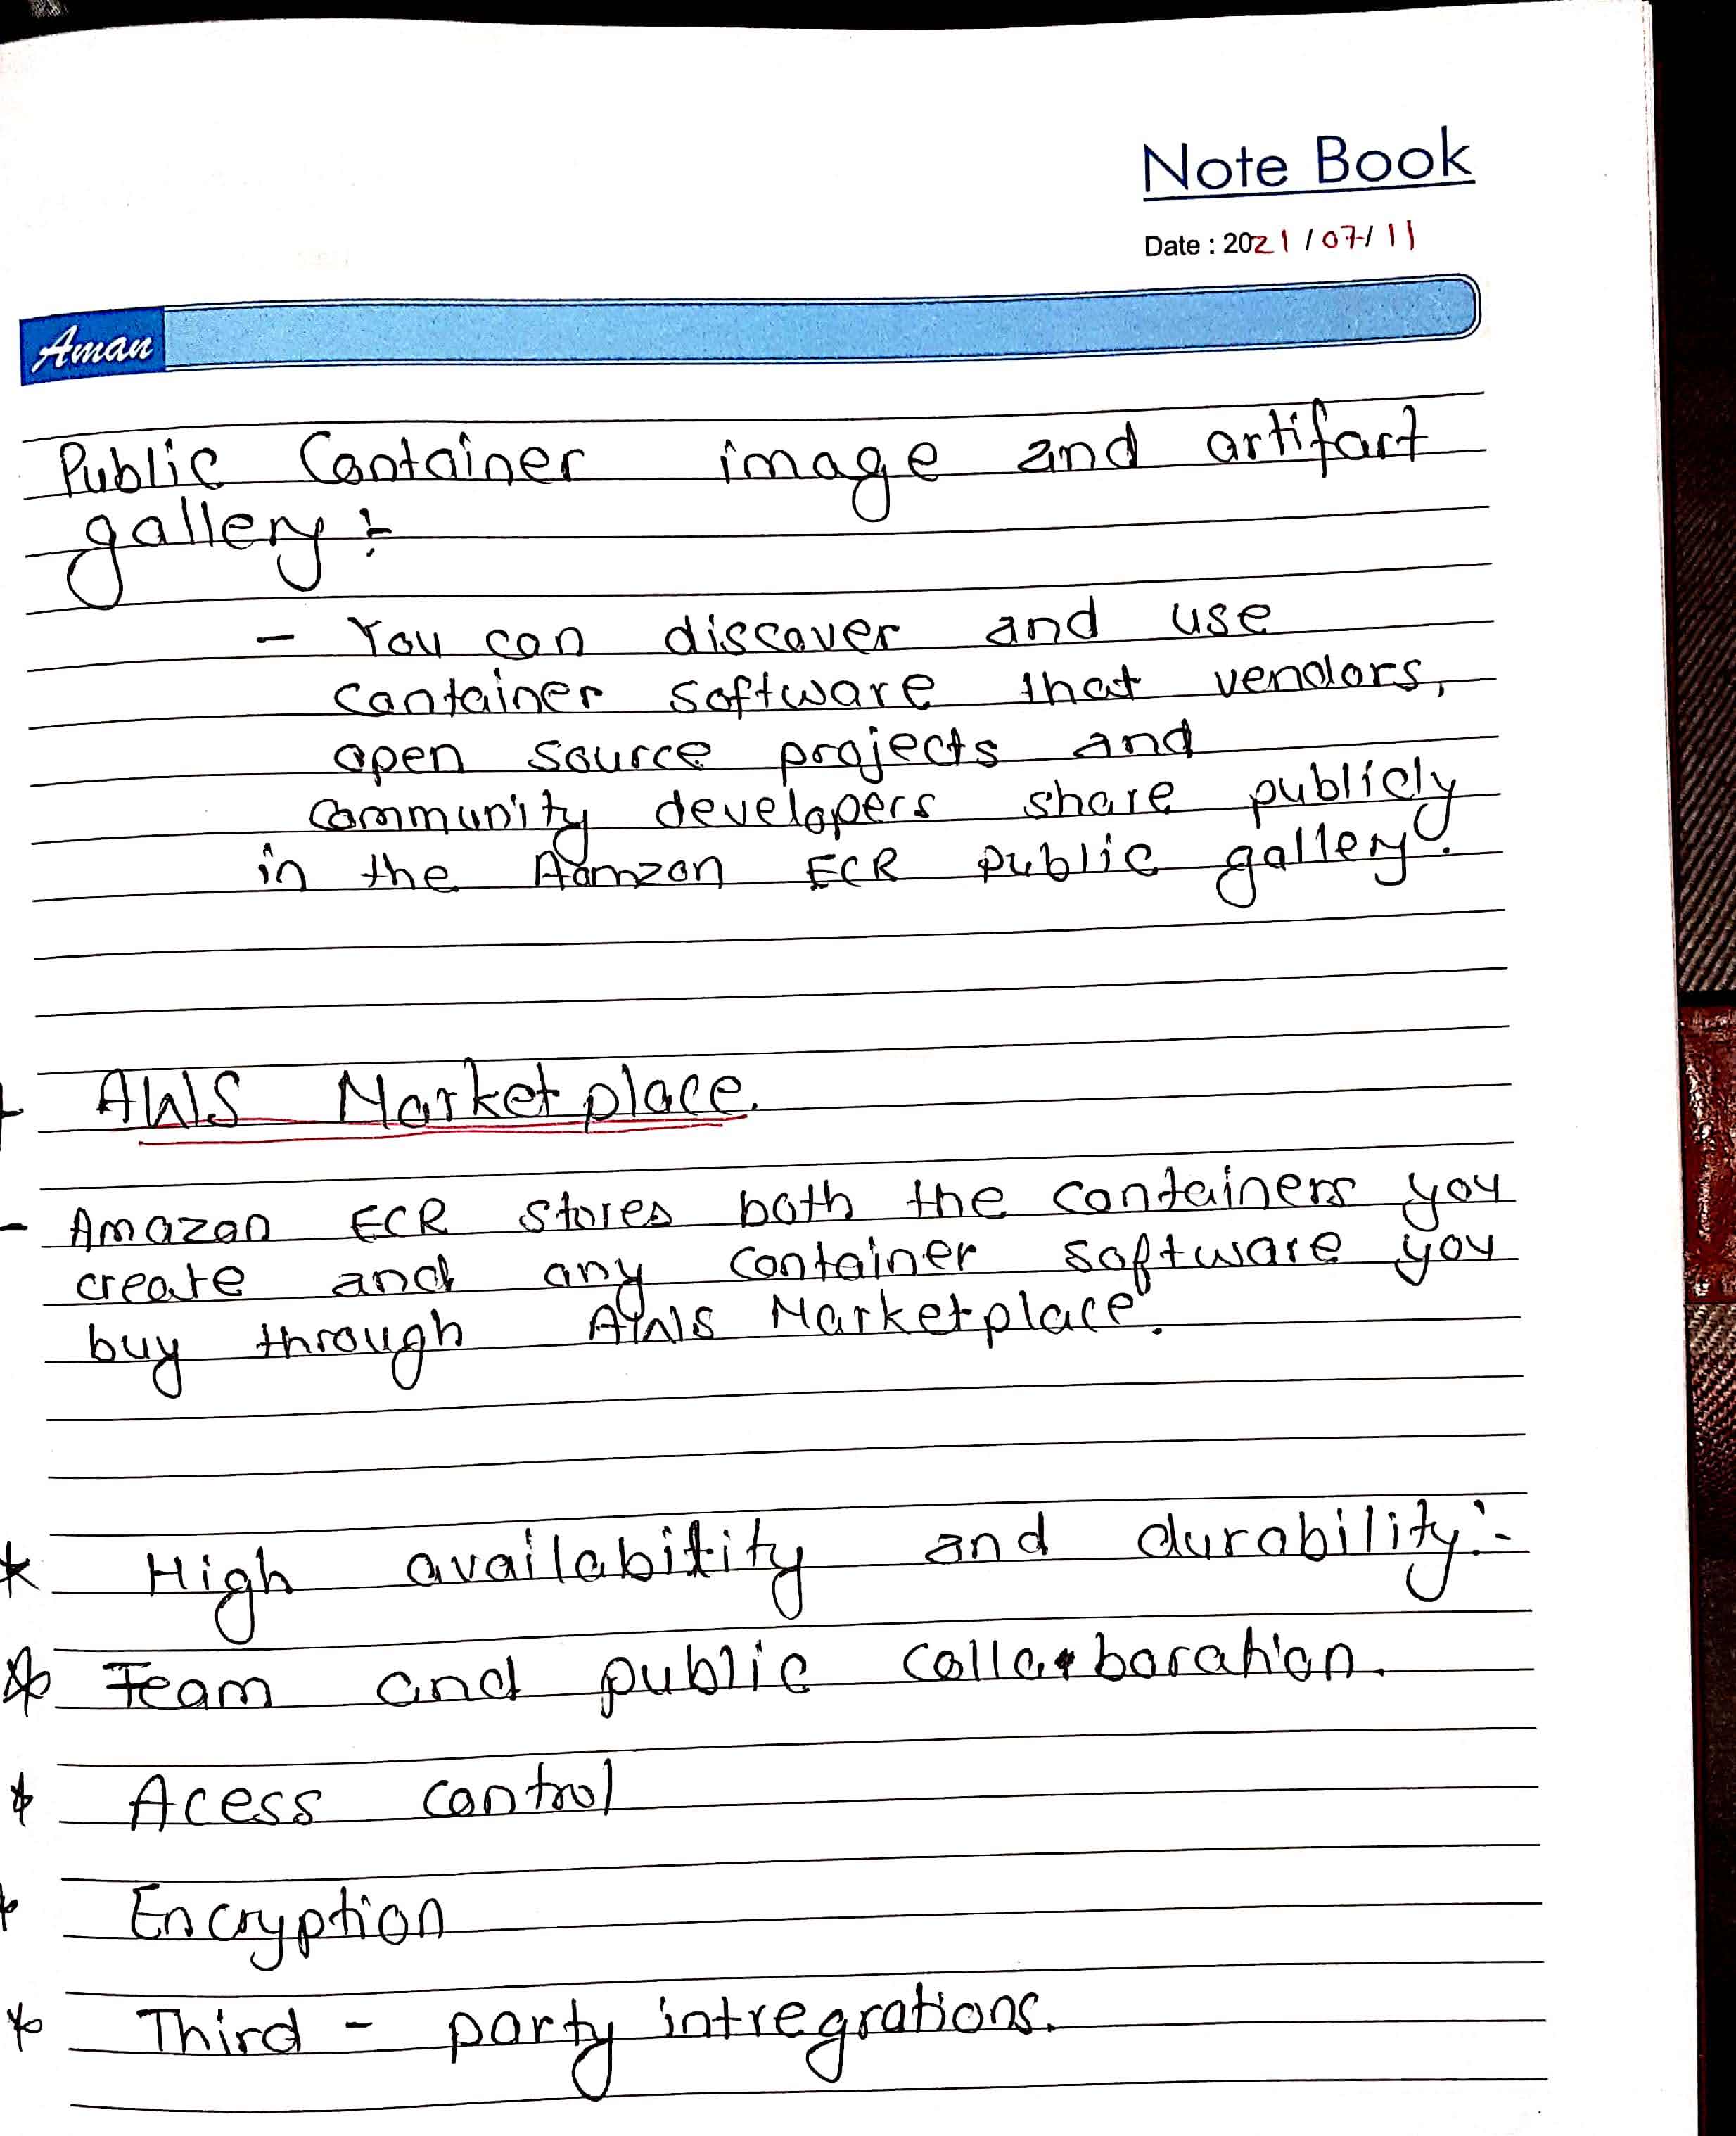 Note Book
Date : 2021 / 07/ 11
Aman
Public Container image and artifart
gallery :-
- You can discover and use
container software that vendors,
open source projects and
community developers share publicly
in the Aamzon ECR public gallery.
* AWS Marketplace.
- Amazon ECR stores both the containers you
create and any container software you
buy through AWS Marketplace.
* High availability and durability :-
* Team and public collarboration.
* Acess control
* Encryption
* Third - party intregrations.